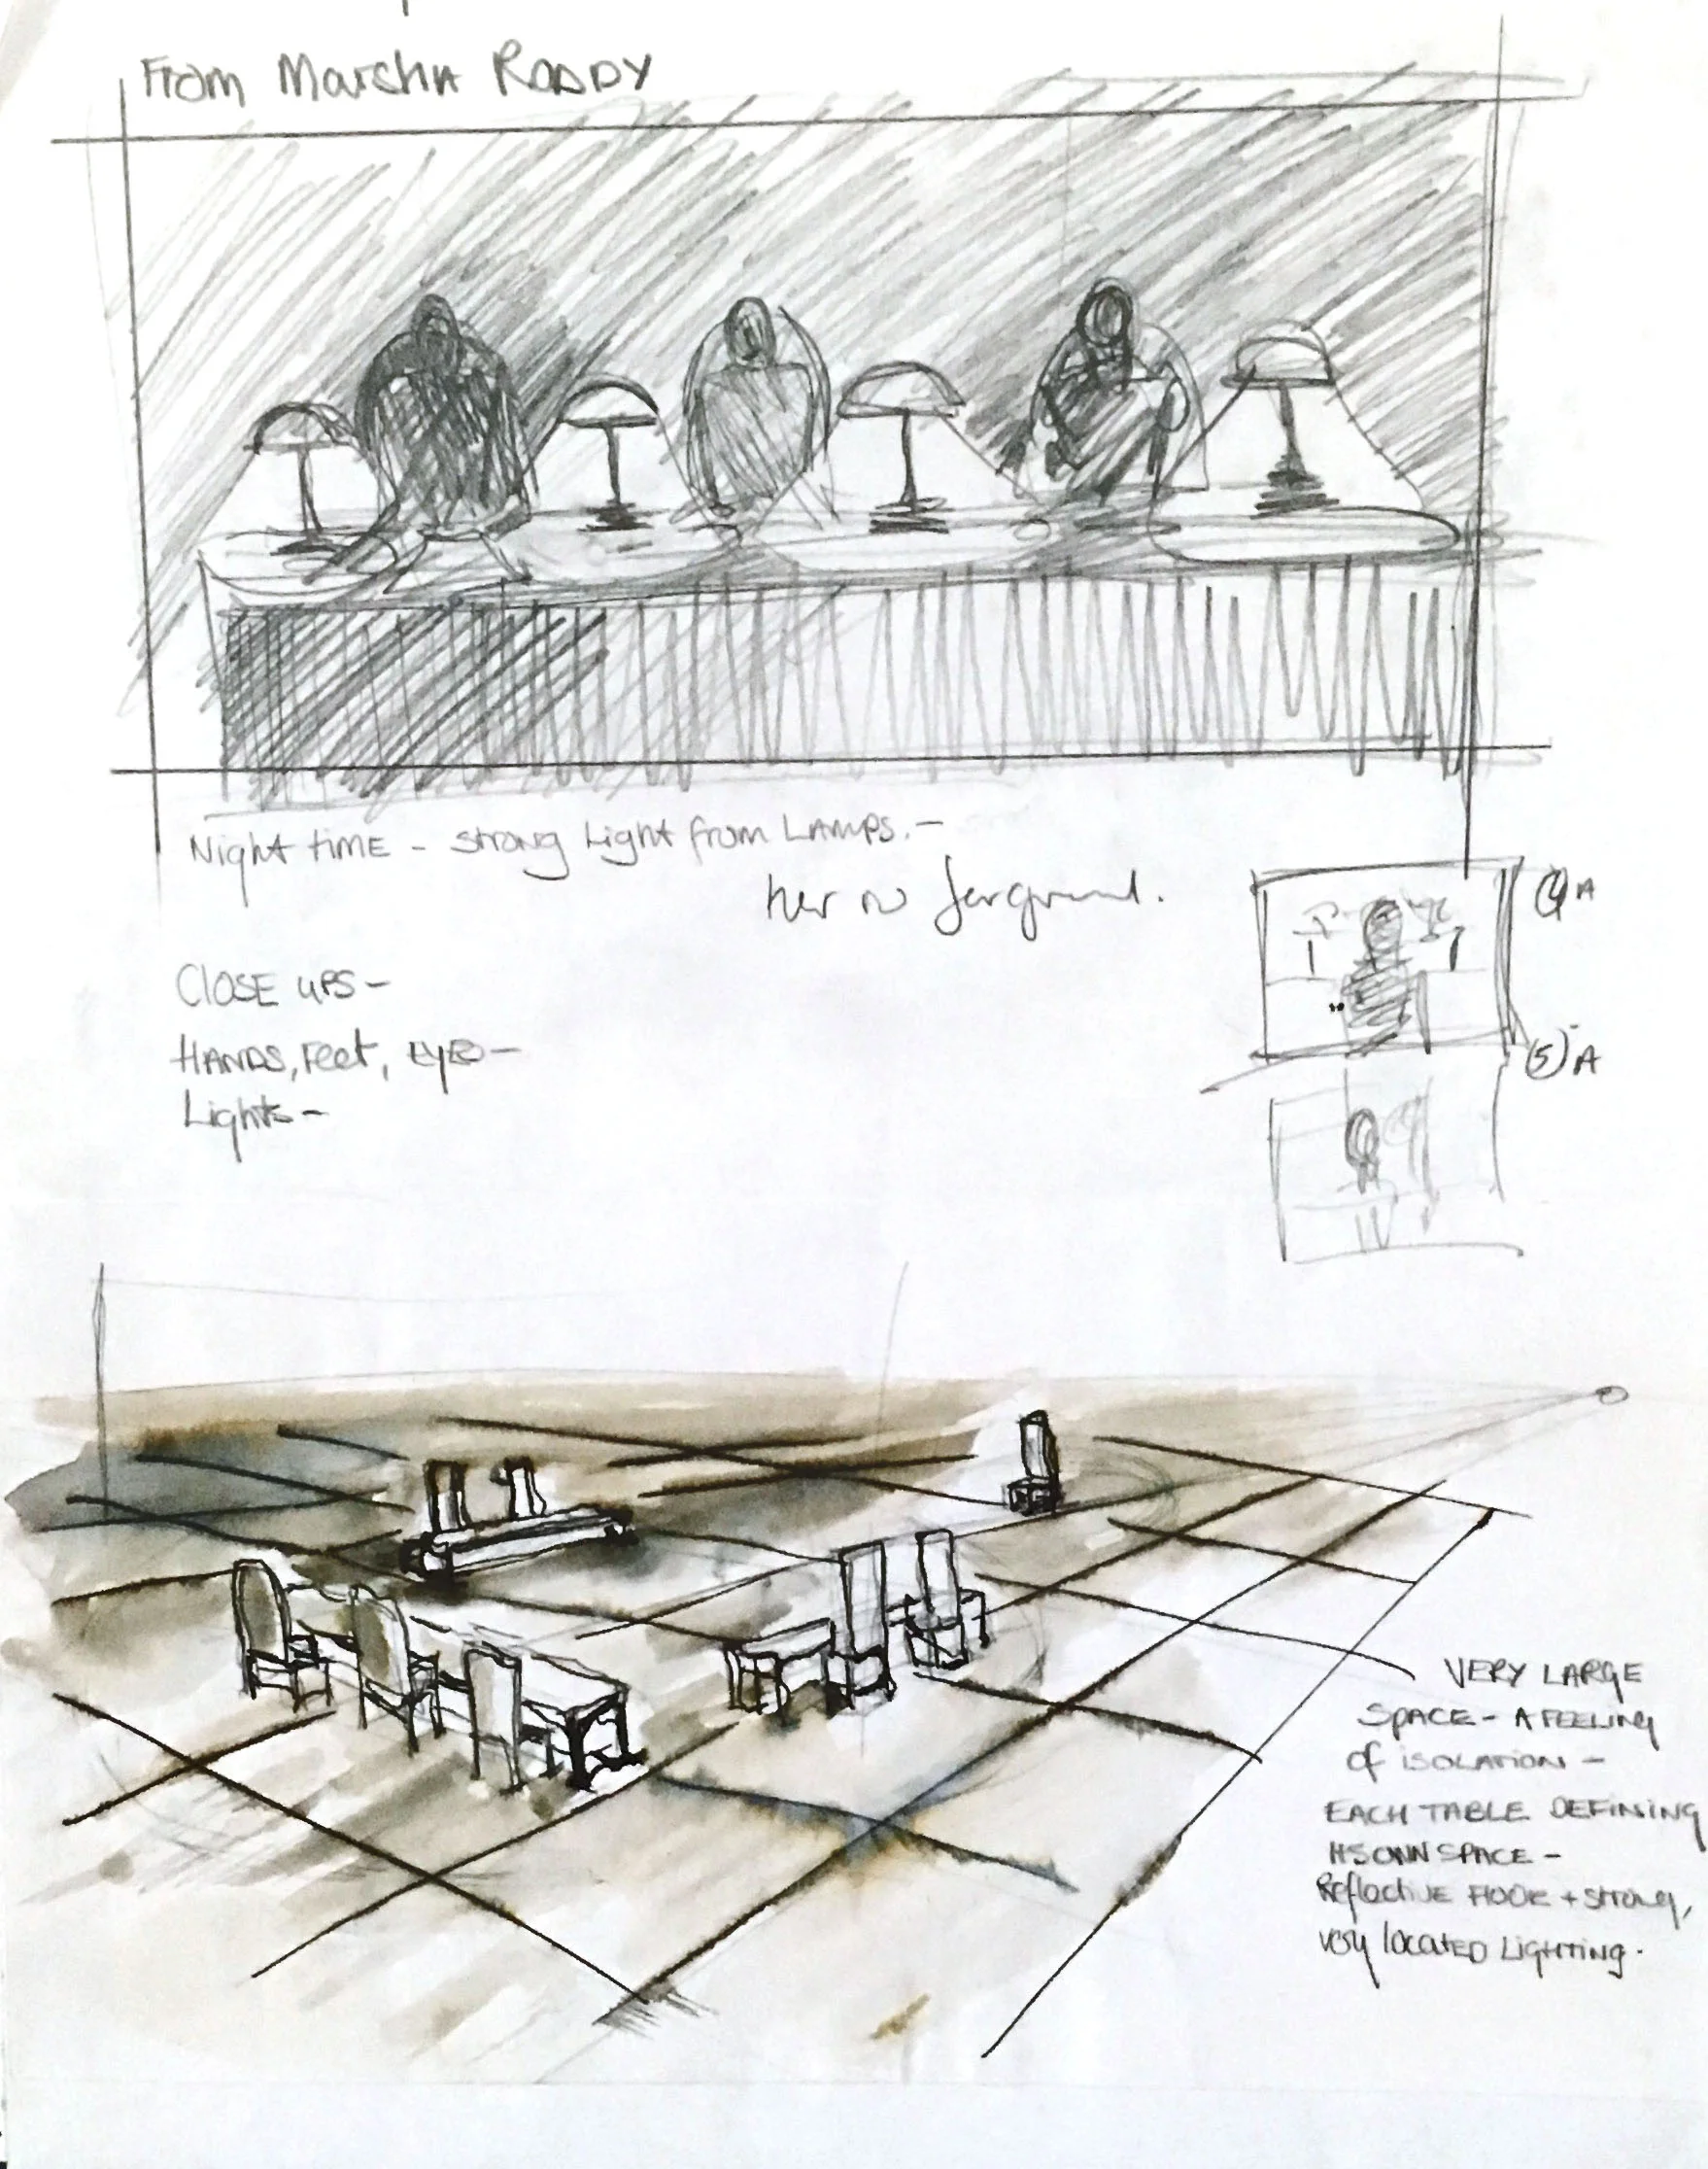 From Marsha RODDY
Night time - strong Light from LAMPS. -
her in foreground.
4 A
CLOSE UPS -
HANDS, Feet, EYES -
5 A
Lights -
VERY LARGE
SPACE - A FEELING
of ISOLATION -
EACH TABLE DEFINING
ITS OWN SPACE -
Reflective FLOOR + strong,
very located LIGHTING.